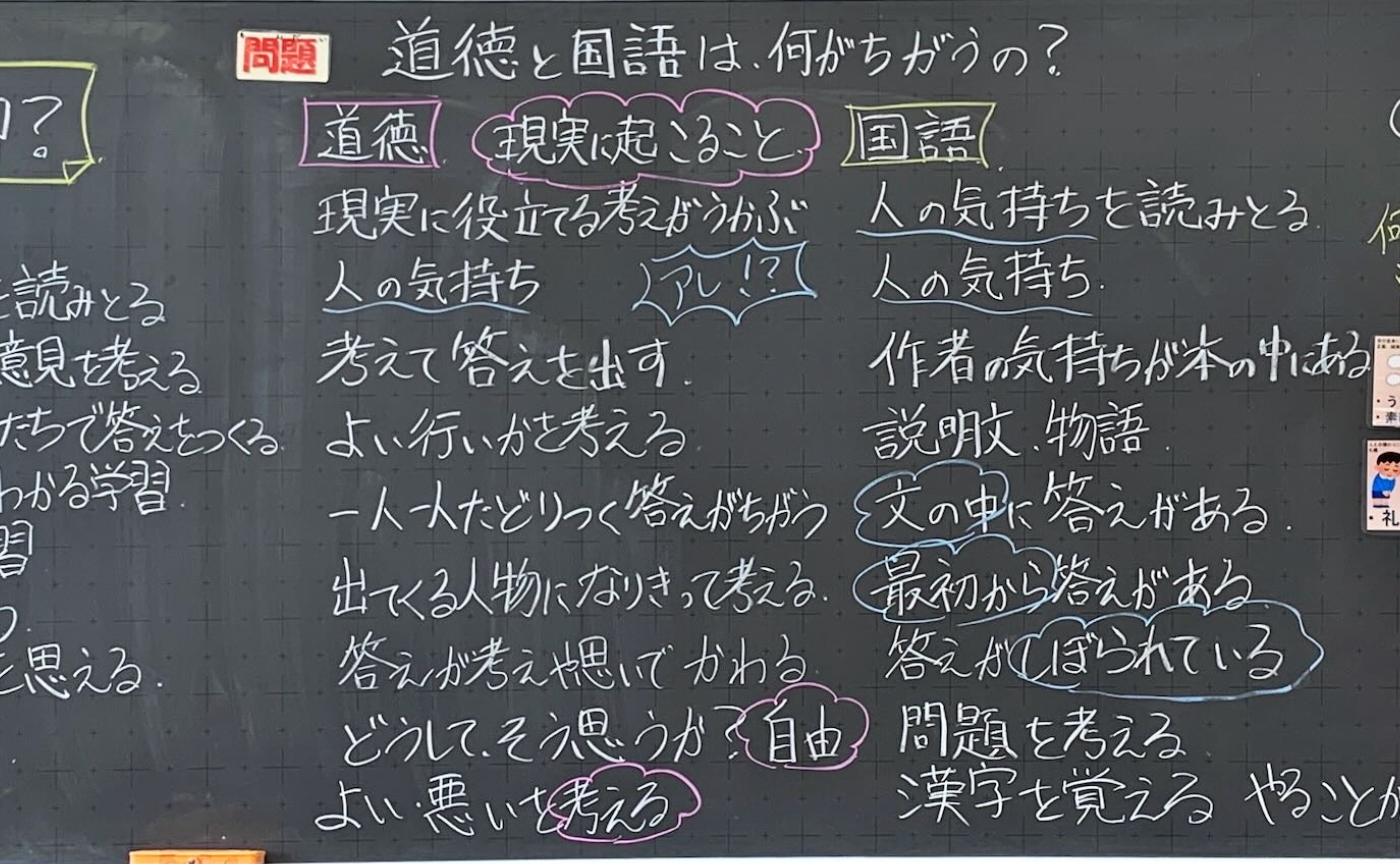 問題 道徳と国語は、何がちがうの？
？
道徳 現実に起こること
現実に役立てる考えがうかぶ
人の気持ち アレ！？
考えて答えを出す.
よい行いかを考える
一人一人たどりつく答えがちがう
出てくる人物になりきって考える.
答えが考えや思いでかわる
どうして、そう思うか？自由
よい・悪いを考える
国語
人の気持ちを読みとる.
人の気持ち.
作者の気持ちが本の中にある
説明文、物語.
文の中に答えがある.
最初から答えがある
答えがしぼられている
問題を考える
漢字を覚える やることが
を読みとる
意見を考える
たちで答えをつくる.
わかる学習.
習
と思える.
何
・う
・礼